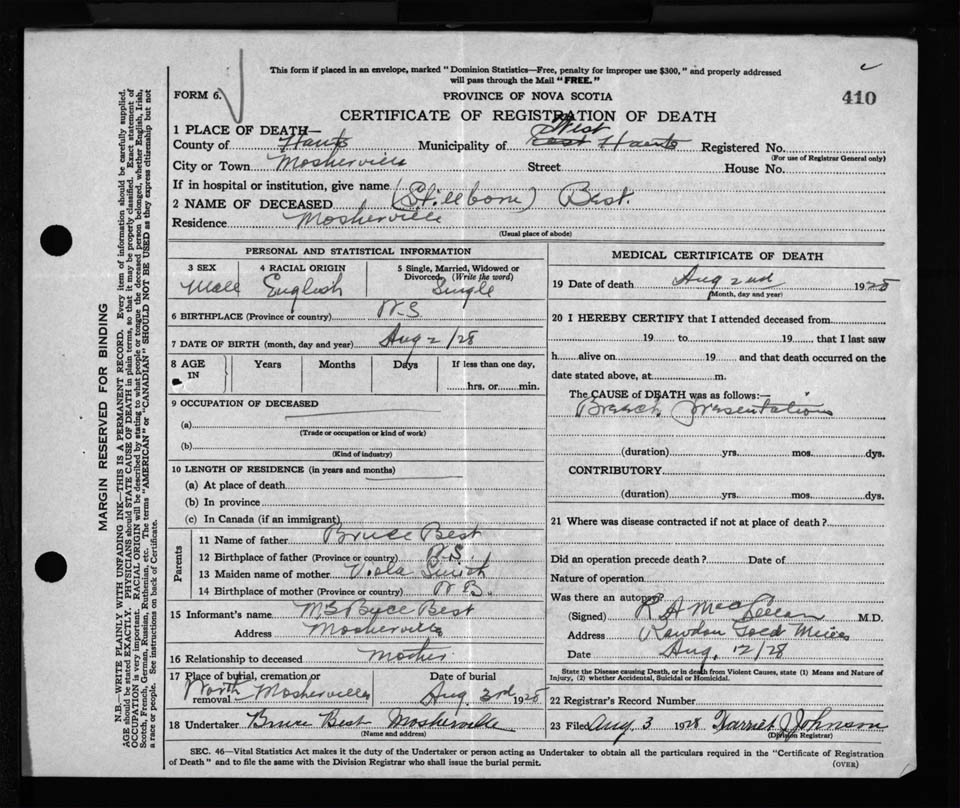 This form if placed in an envelope, marked "Dominion Statistics—Free, penalty for improper use $300," and properly addressed
will pass through the Mail "FREE."
FORM 6.
PROVINCE OF NOVA SCOTIA
410
CERTIFICATE OF REGISTRATION OF DEATH
1 PLACE OF DEATH—
West
County of Hants Municipality of East Hants Registered No.
(For use of Registrar General only)
City or Town Mosherville Street House No.
If in hospital or institution, give name
2 NAME OF DECEASED (Stillborn) Best.
Residence Mosherville
(Usual place of abode)
PERSONAL AND STATISTICAL INFORMATION
3 SEX 4 RACIAL ORIGIN 5 Single, Married, Widowed or
Divorced (Write the word)
Male English Single
6 BIRTHPLACE (Province or country) N.S.
7 DATE OF BIRTH (month, day and year) Aug 2/28
8 AGE Years Months Days If less than one day,
IN hrs. or min.
9 OCCUPATION OF DECEASED
(a)
(Trade or occupation or kind of work)
(b)
(Kind of industry)
10 LENGTH OF RESIDENCE (in years and months)
(a) At place of death
(b) In province
(c) In Canada (if an immigrant)
Parents
11 Name of father Bruce Best
12 Birthplace of father (Province or country) N.S.
13 Maiden name of mother Viola Smith
14 Birthplace of mother (Province or country) N.B.
15 Informant's name Best
Address Mosherville
16 Relationship to deceased Mother
17 Place of burial, cremation or Date of burial
removal North Mosherville Aug. 3rd 1928
18 Undertaker Bruce Best Mosherville
(Name and address)
MEDICAL CERTIFICATE OF DEATH
19 Date of death Aug 2nd 1928
(Month, day and year)
20 I HEREBY CERTIFY that I attended deceased from
19 to 19 that I last saw
h alive on 19 and that death occurred on the
date stated above, at m.
The CAUSE of DEATH was as follows:—
Breech presentation
(duration) yrs. mos. dys.
CONTRIBUTORY
(duration) yrs. mos. dys.
21 Where was disease contracted if not at place of death?
Did an operation precede death? Date of
Nature of operation
Was there an autopsy?
(Signed) R A MacLellan M.D.
Address Rawdon Gold Mines
Date Aug. 12/28
State the Disease causing Death, or in death from Violent Causes, state (1) Means and Nature of
Injury, (2) whether Accidental, Suicidal or Homicidal.
22 Registrar's Record Number
23 Filed Aug 3 1928 Harriet J Johnson
(Division Registrar)
SEC. 46—Vital Statistics Act makes it the duty of the Undertaker or person acting as Undertaker to obtain all the particulars required in the "Certificate of Registration
of Death" and to file the same with the Division Registrar who shall issue the burial permit.
(OVER)
MARGIN RESERVED FOR BINDING
N.B.—WRITE PLAINLY WITH UNFADING INK—THIS IS A PERMANENT RECORD. Every item of information should be carefully supplied.
AGE should be stated EXACTLY. PHYSICIANS should STATE CAUSE OF DEATH in plain terms, so that it may be properly classified. Exact statement of
OCCUPATION is very important. RACIAL ORIGIN will be described by stating to what people or tongue the deceased person belonged, whether English, Irish,
Scotch, French, German, Russian, Ruthenian, etc. The terms "AMERICAN" or "CANADIAN" SHOULD NOT BE USED as they express citizenship but not
a race or people. See instructions on back of Certificate.